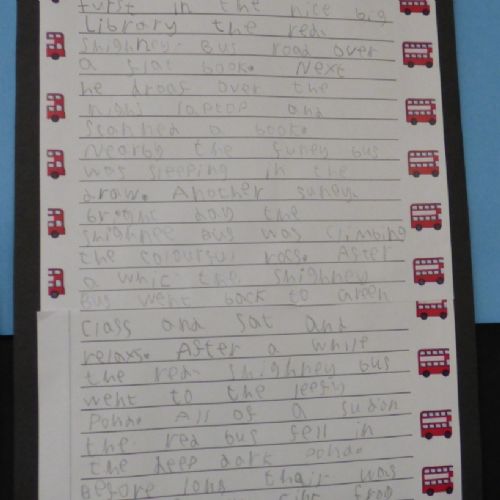 furst in the nice big
library the red
shighney bus road over
a flat book. Next
he droas over the
laptop and
scanned a book.
Nearby the funey bus
was sleeping in the
draw. Another suney
bright day the
shighnee bus was climbing
the colourful rocs. After
a whic the shighney
Bus went back to Green
class and sat and
relaxs. After a while
the red shighney bus
went to the leefy
Pond. All of a sudon
the red bus fell in
the deep dark pond.
Before long thair was